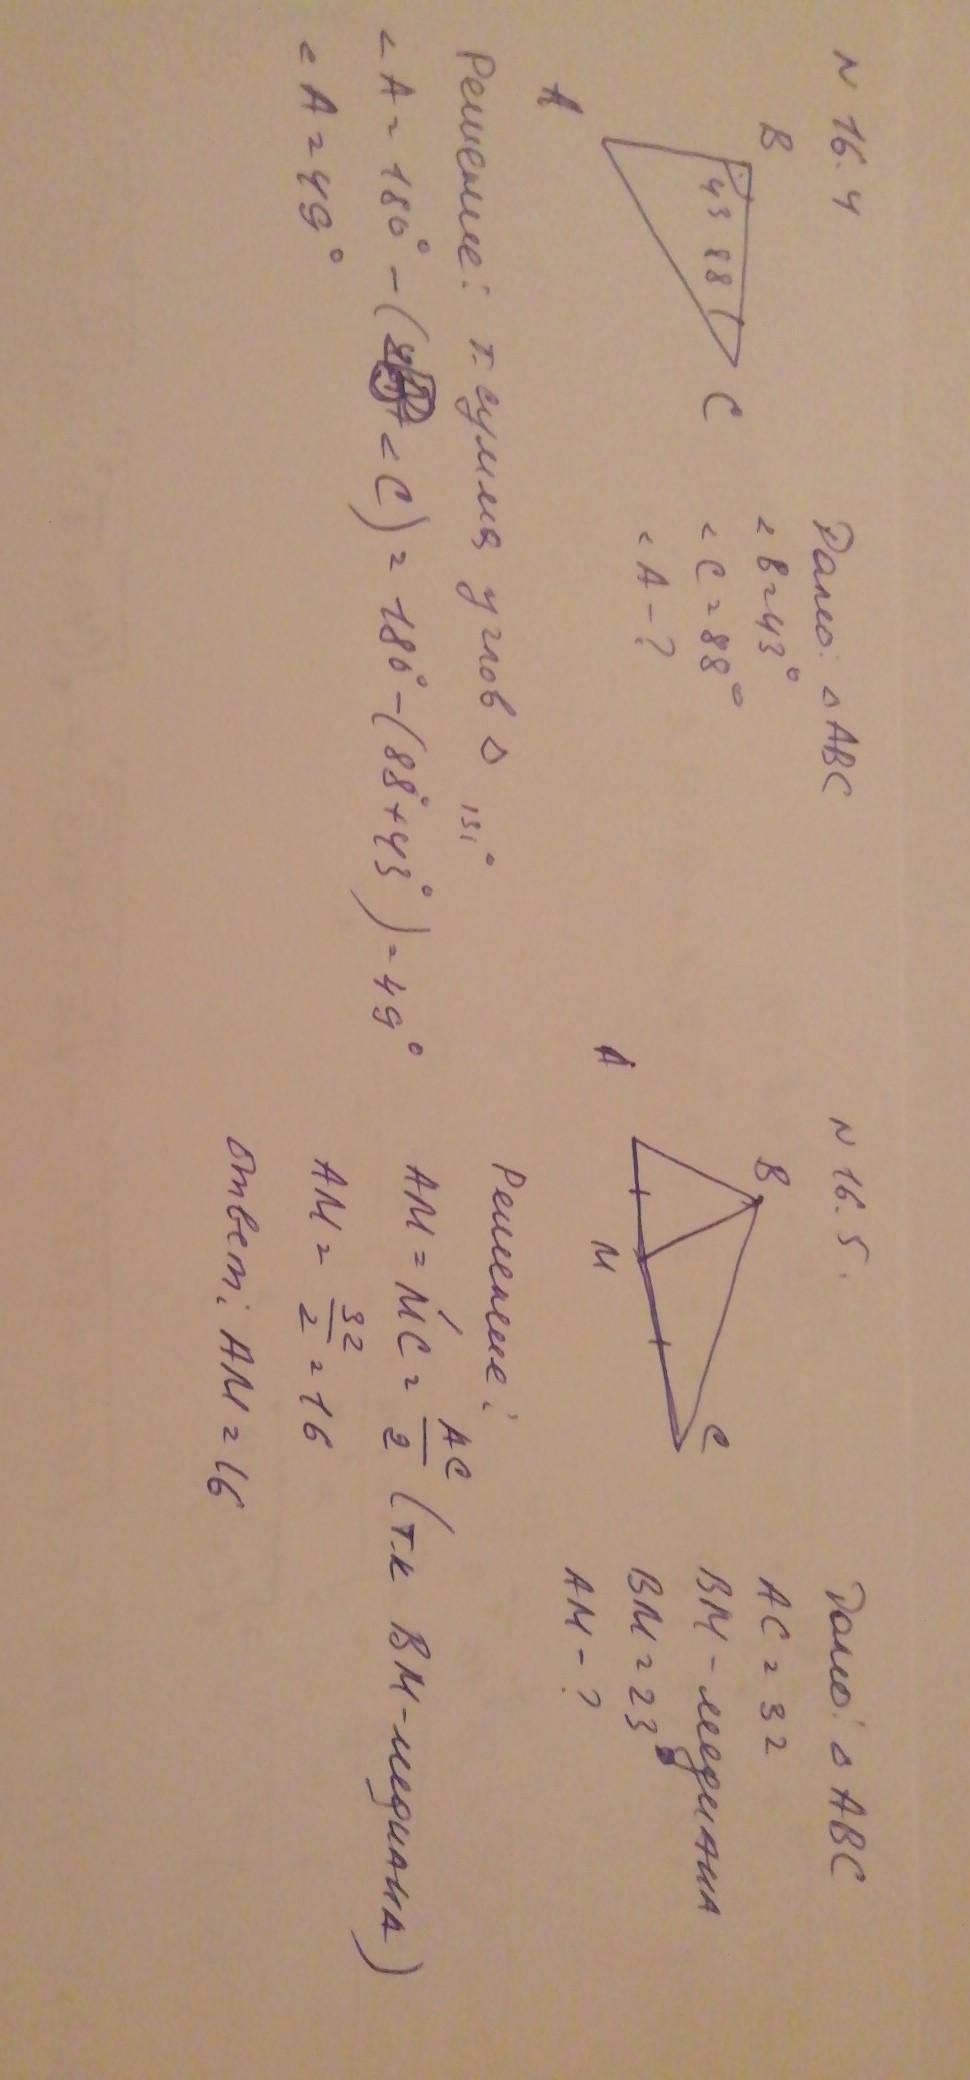 N 16.4
B
A
C
43 88
Дано: △ABC
∠B=43°
∠C=88°
∠A-?
Решение: т. сумма углов △
131°
∠A=180°-( ∠C)=180°-(88°+43°)=49°
∠A=49°
N 16.5.
B
A
M
C
Дано: △ABC
AC=32
BM-медиана
BM=23
AM-?
Решение:
AM=MC=AC/2 (т.к BM-медиана)
AM=32/2=16
Ответ: AM=16